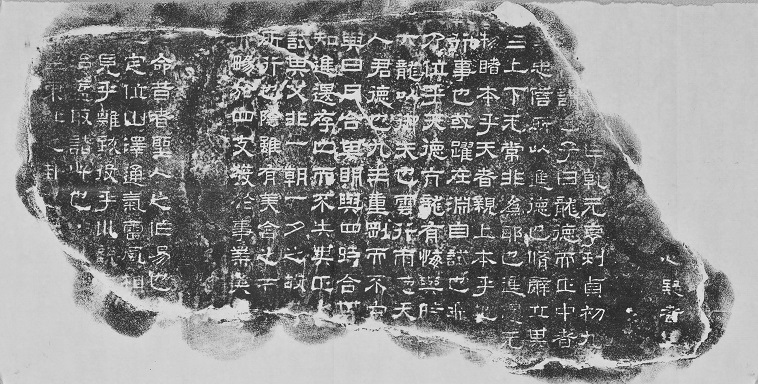 心疑者
乾元亨利貞初九
子曰龍德而正中者
忠信所以進德也脩辭立其
上下无常非為邪也進退无
物睹本乎天者親上本乎地
行事也或躍在淵自試也飛
乃位乎天德亢龍有悔與時
六龍以御天也雲行雨施天
人君德也九四重剛而不中
與日月合其明與四時合其
知進退存亡而不失其正
試其父非一朝一夕之故
所行也陰雖有美含之
暢於四支發於事業美
命昔者聖人之作易也
定位山澤通氣雷風相
見乎離致役乎巛
取諸此也